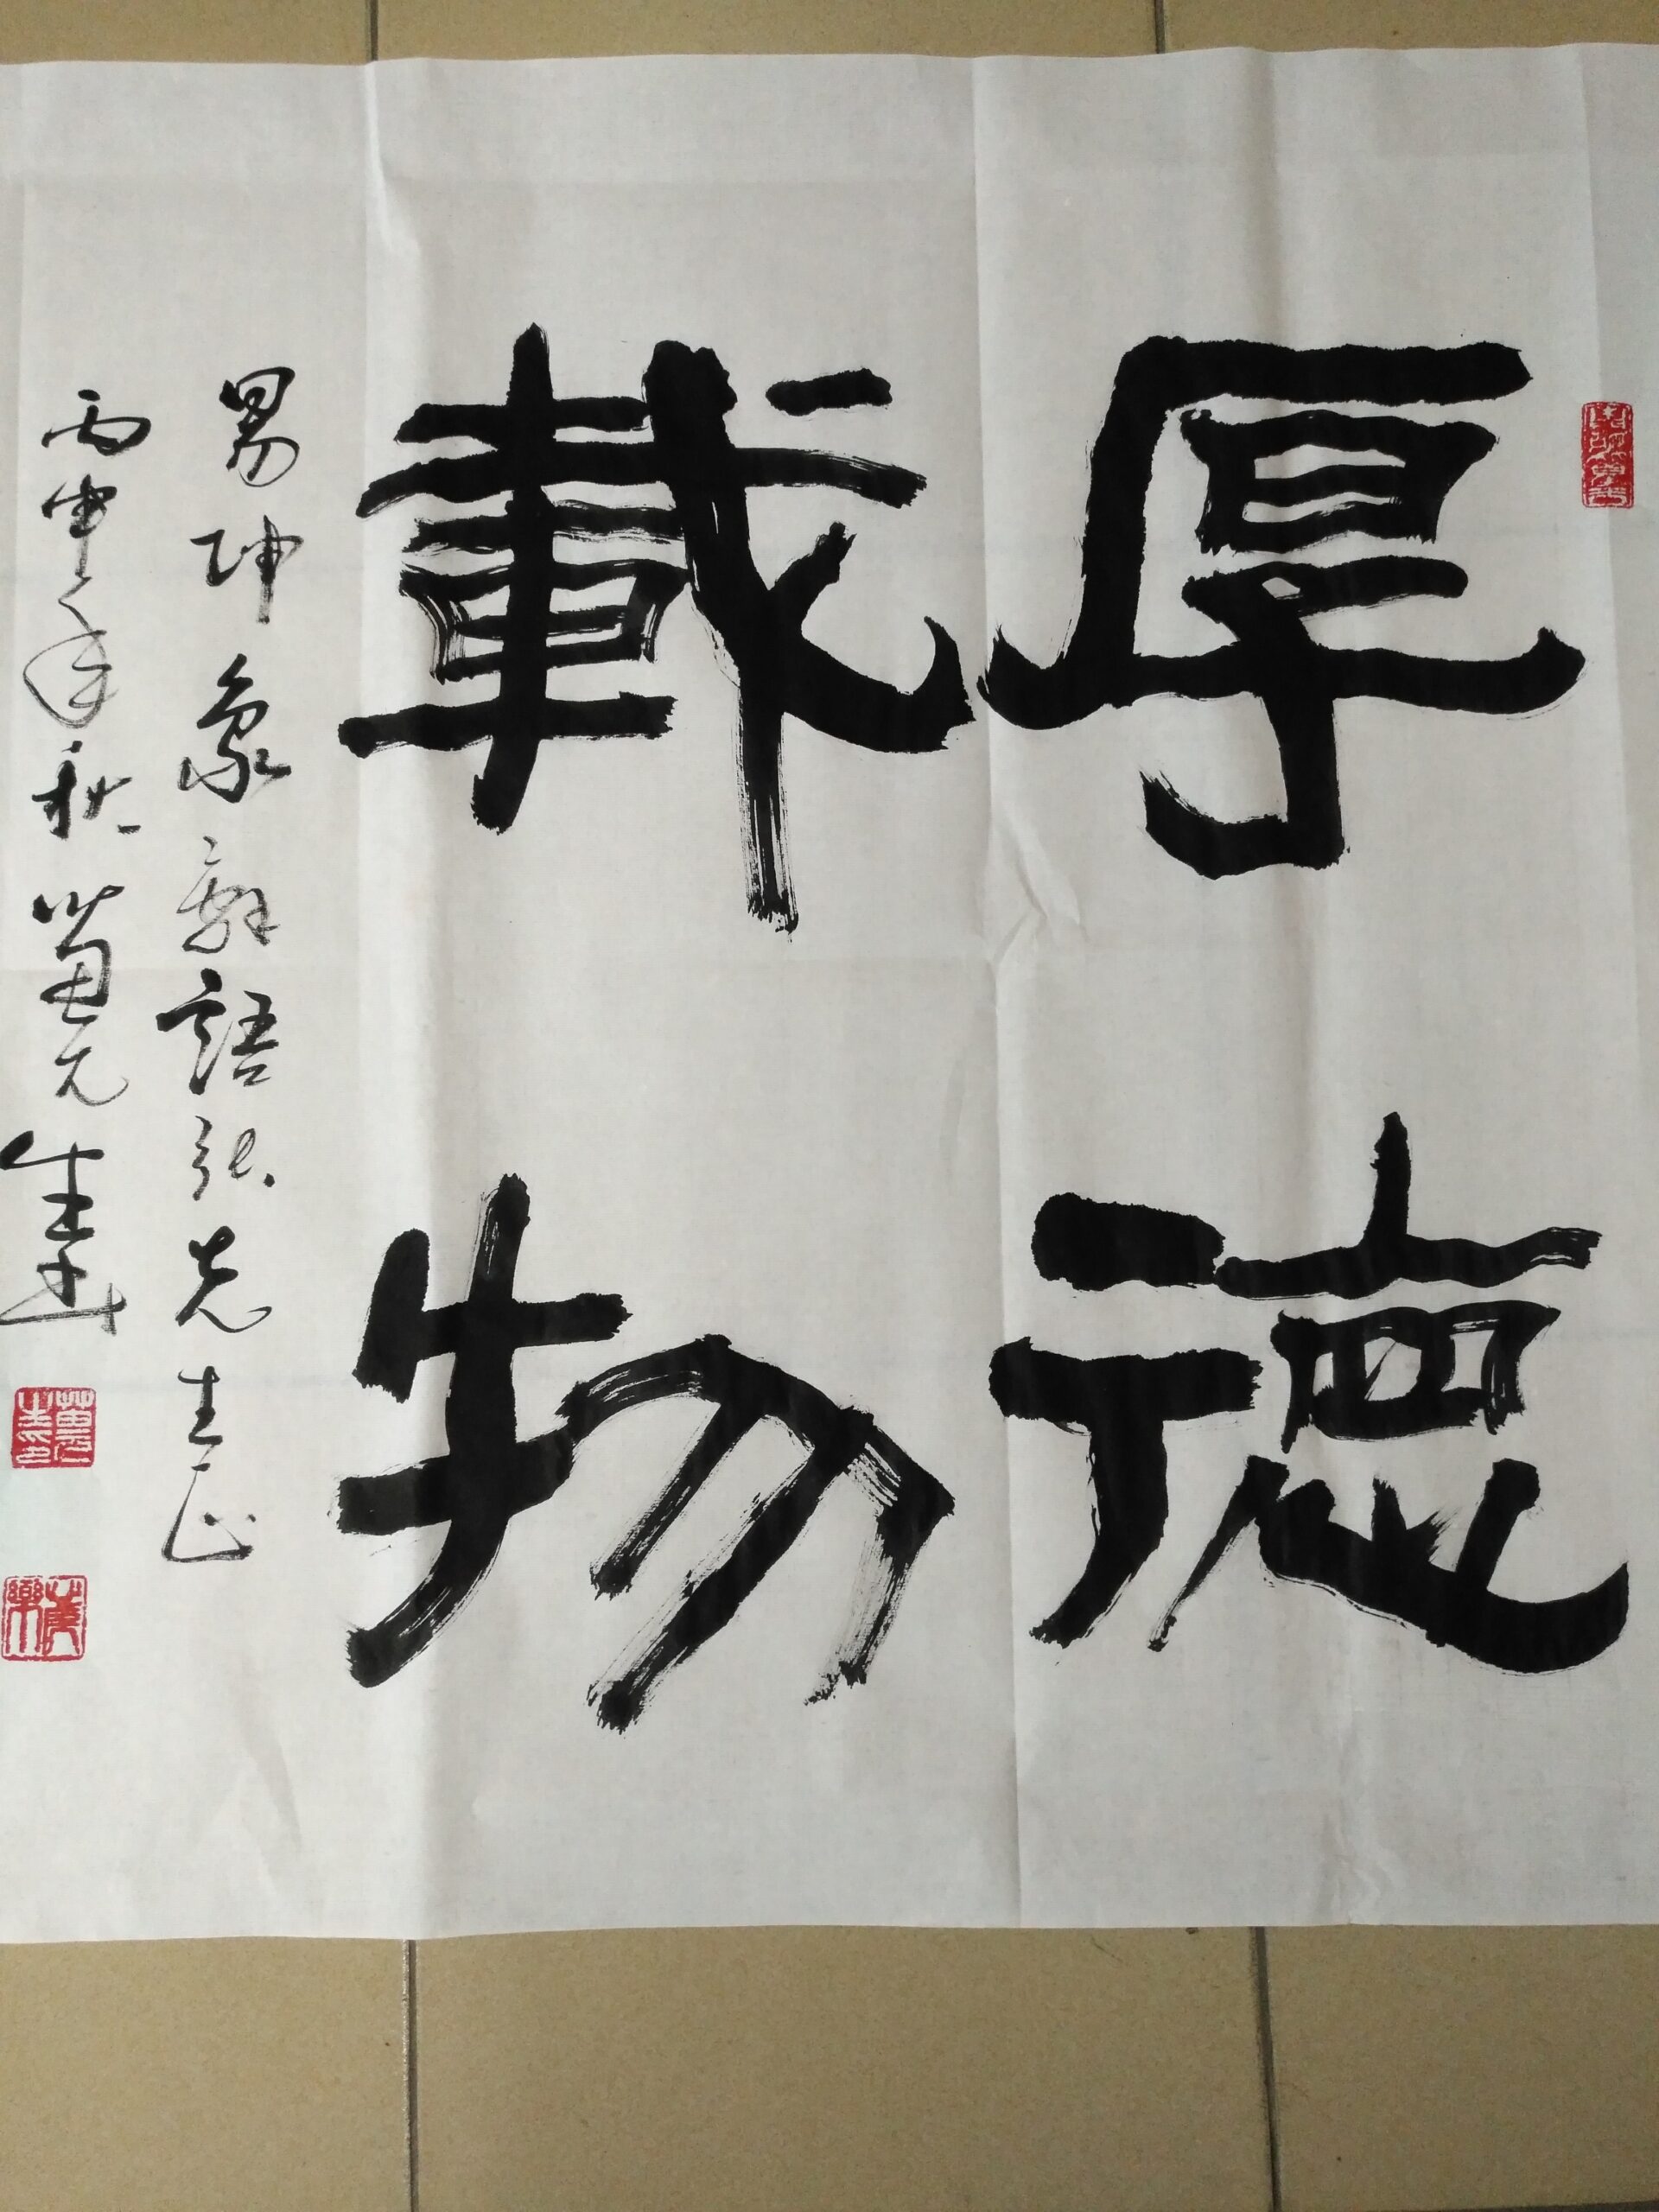 厚德
載物
易坤象辭語弘先生正
丙申年秋萬元生書